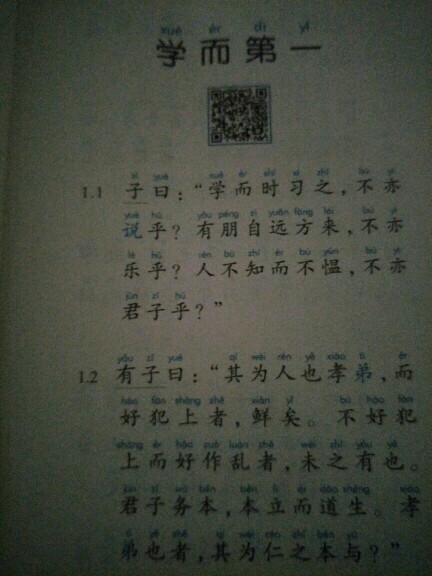 xué ér dì yī
学而第一
zǐ yuē xué ér shí xí zhī bú yì
1.1 子曰：“学而时习之，不亦
yuè hū yǒu péng zì yuǎn fāng lái bú yì
说乎？有朋自远方来，不亦
lè hū rén bù zhī ér bú yùn bú yì
乐乎？人不知而不愠，不亦
jūn zǐ hū
君子乎？”
yǒu zǐ yuē qí wéi rén yě xiào tì ér
1.2 有子曰：“其为人也孝弟，而
hào fàn shàng zhě xiǎn yǐ bú hào fàn
好犯上者，鲜矣。不好犯
shàng ér hào zuò luàn zhě wèi zhī yǒu yě
上而好作乱者，未之有也。
jūn zǐ wù běn běn lì ér dào shēng xiào
君子务本，本立而道生。孝
tì yě zhě qí wéi rén zhī běn yú
弟也者，其为仁之本与？”